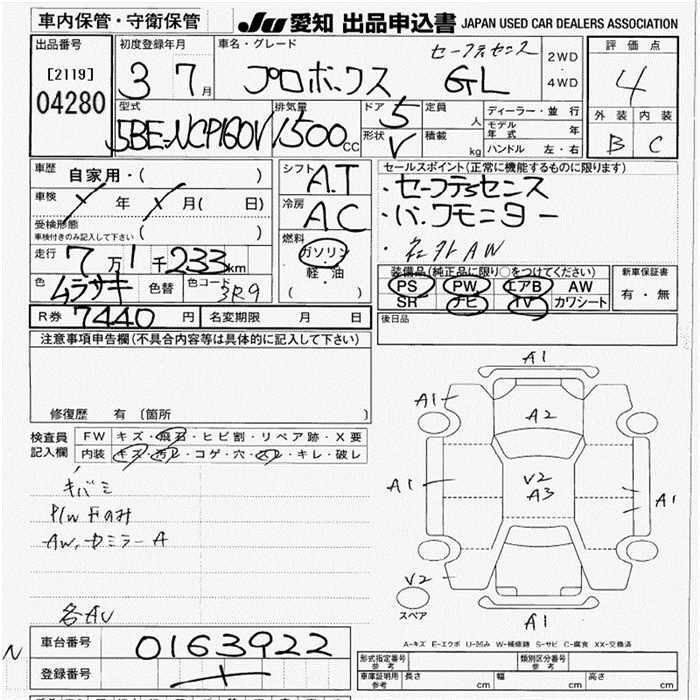 車内保管・守衛保管
JU 愛知 出品申込書 JAPAN USED CAR DEALERS ASSOCIATION
出品番号
[2119]
04280
初度登録年月
3 7月
車名・グレード
プロボックス セーフティセンス GL
2WD
・
4WD
評価点
4
外装 内装
B C
型式
5BE-NCP160V
排気量
1500cc
ドア 5
形状 V
定員 人
積載 kg
ディーラー・並行
モデル年式 年
ハンドル 左・右
車歴 自家用・( )
車検 年 月( 日)
受検形態
車検付きのみ記入して下さい ( )
走行 7万1千233km
色 ムラサキ 色替 色コード 3R9
シフト A.T
冷房 AC
燃料
ガソリン
・
軽・油
( )
セールスポイント(正常に機能するものに限ります)
・セーフティセンス
・バックモニター
・社外AW
装備品(純正品に限り○をつけてください)
PS PW エアB AW
SR ナビ TV カワシート
新車保証書
有・無
後日品
R券 7440円 名変期限 月 日
注意事項申告欄(不具合内容等は具体的に記入して下さい)
修復歴 有 〔箇所 〕
検査員
記入欄
FW キズ・飛石・ヒビ割・リペア跡・X要
内装 キズ・汚レ・コゲ・穴・スレ・キレ・破レ
キバミ
P/W Fのみ
AW、
A
各AU
A1
A1
A2
A1
V2
A3
A1
V2
スペア
A1
A-キズ E-エクボ U-凹み W-補修跡 S-サビ C-腐食 XX-交換済
N
車台番号 0163922
登録番号
形式指定番号
参考
類別区分番号
参考
車庫証明用
参考
長さ cm 幅 cm 高さ cm